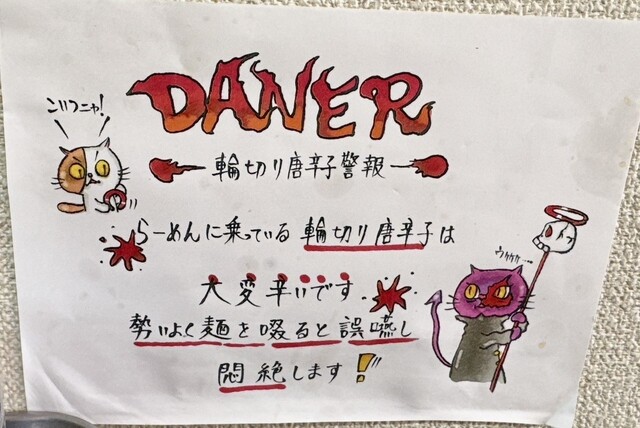 こいつニャ!
DANER
輪切り唐辛子警報
らーめんに乗っている輪切り唐辛子は
大変辛いです
ウケケケ…
勢いよく麺を啜ると誤嚥し
悶絶します!